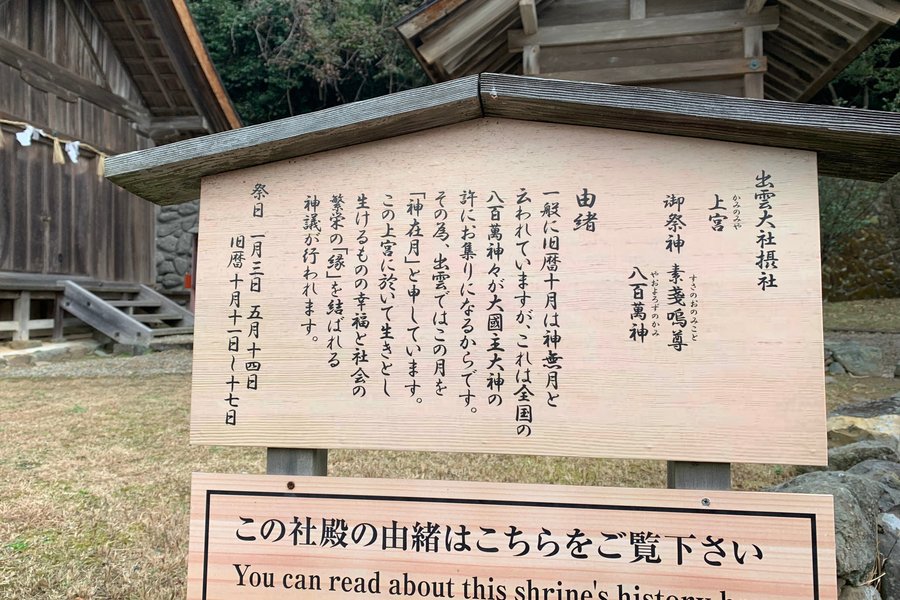 出雲大社摂社
上宮
かみのみや
御祭神 素戔嗚尊
すさのおのみこと
八百萬神
やおよろずのかみ
由緒
一般に旧暦十月は神無月と
云われていますが、これは全国の
八百萬神々が大國主大神の
許にお集りになるからです。
その為、出雲ではこの月を
「神在月」と申しています。
この上宮に於いて生きとし
生けるものの幸福と社会の
繁栄の「縁」を結ばれる
神議が行われます。
祭日 一月三日 五月十四日
旧暦十月十一日〜十七日
この社殿の由緒はこちらをご覧下さい
You can read about this shrine's history